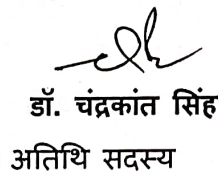 डॉ. चंद्रकांत सिंह
अतिथि सदस्य